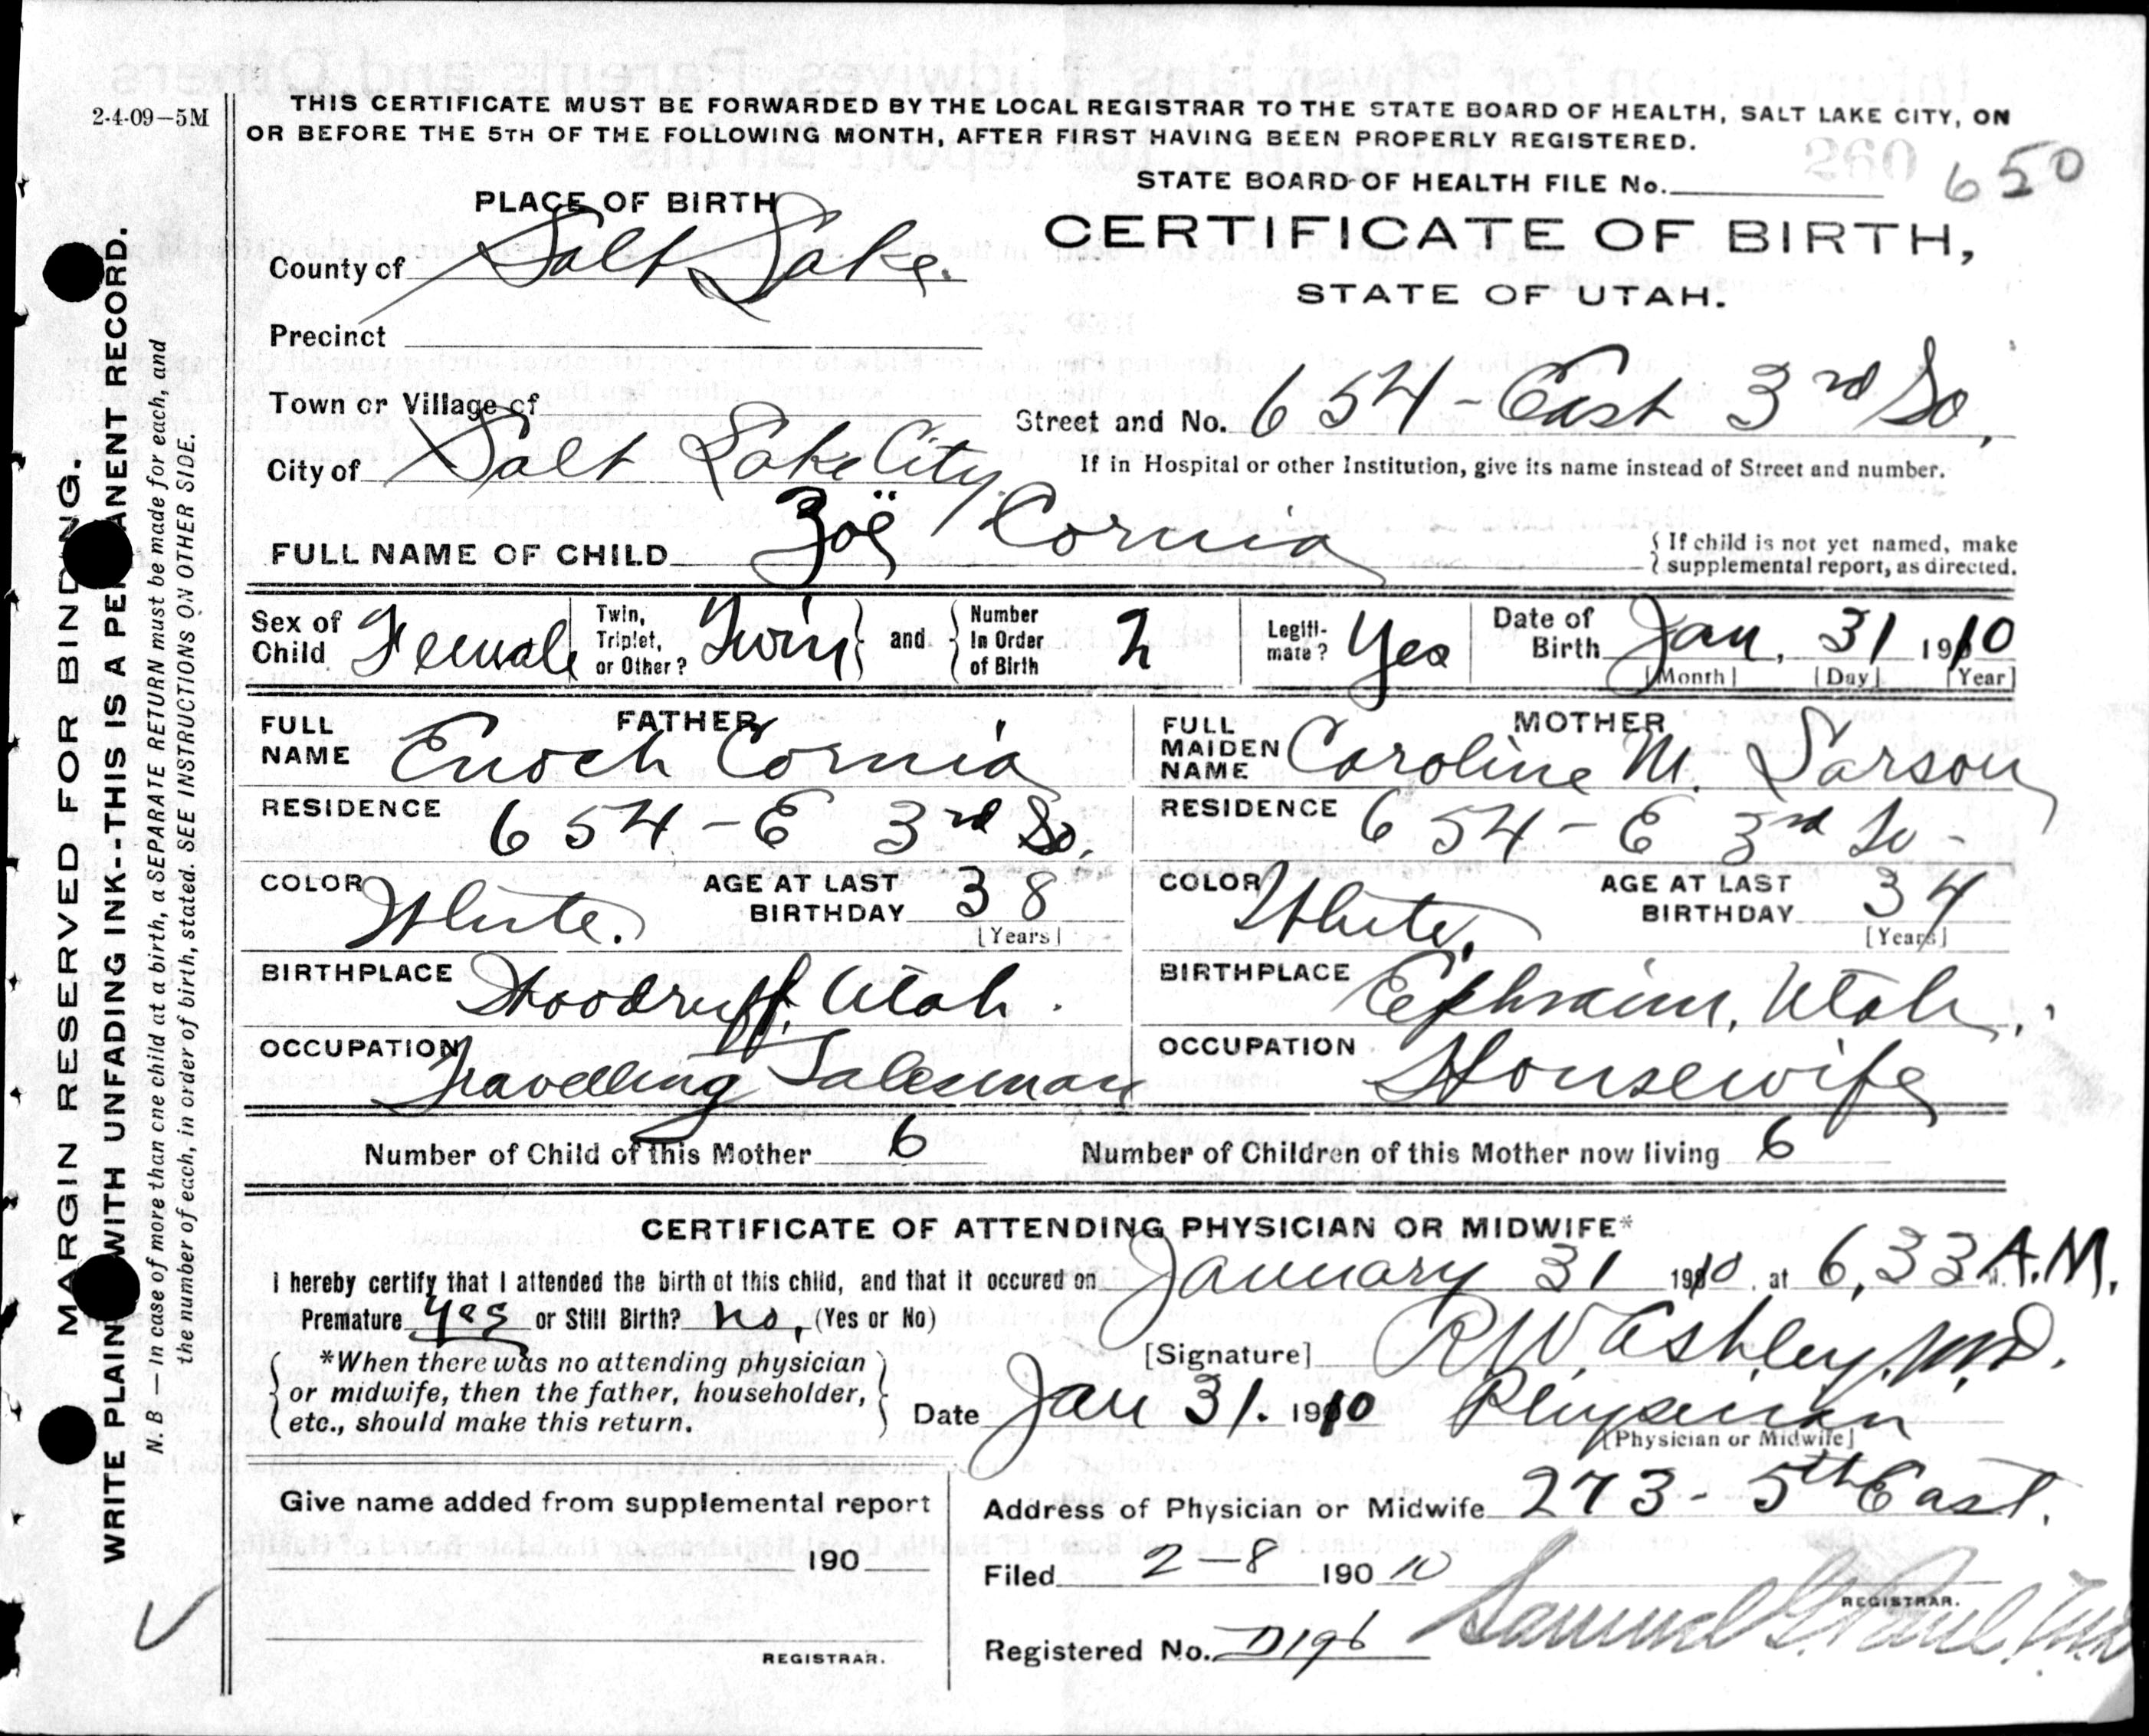 2-4-09—5M
THIS CERTIFICATE MUST BE FORWARDED BY THE LOCAL REGISTRAR TO THE STATE BOARD OF HEALTH, SALT LAKE CITY, ON
OR BEFORE THE 5TH OF THE FOLLOWING MONTH, AFTER FIRST HAVING BEEN PROPERLY REGISTERED.
STATE BOARD OF HEALTH FILE No. 260 650
PLACE OF BIRTH
CERTIFICATE OF BIRTH,
STATE OF UTAH.
County of Salt Lake.
Precinct
Town or Village of
Street and No. 654 - East 3rd So.
City of Salt Lake City.
If in Hospital or other Institution, give its name instead of Street and number.
FULL NAME OF CHILD Zoë Cornia
If child is not yet named, make
supplemental report, as directed.
Sex of Child Female Twin, Triplet, or Other? Twin and Number In Order of Birth 2 Legitimate? Yes Date of Birth Jan. 31 1910
[Month] [Day] [Year]
FATHER
FULL NAME Enoch Cornia
RESIDENCE 654 - E 3rd So.
COLOR White. AGE AT LAST BIRTHDAY 38
[Years]
BIRTHPLACE Woodruff, Utah.
OCCUPATION Travelling Salesman
MOTHER
FULL MAIDEN NAME Caroline M. Larson
RESIDENCE 654 - E 3rd So -
COLOR White. AGE AT LAST BIRTHDAY 34
[Years]
BIRTHPLACE Ephraim, Utah.
OCCUPATION Housewife
Number of Child of this Mother 6 Number of Children of this Mother now living 6
CERTIFICATE OF ATTENDING PHYSICIAN OR MIDWIFE*
I hereby certify that I attended the birth of this child, and that it occured on January 31 1910, at 6,33 A.M.
Premature Yes or Still Birth? No, (Yes or No)
[Signature] R W Ashley, M.D.
*When there was no attending physician
or midwife, then the father, householder,
etc., should make this return.
Date Jan 31. 1910 Physician
[Physician or Midwife]
Give name added from supplemental report
190
REGISTRAR.
Address of Physician or Midwife 273 - 5th East.
Filed 2-8 190 10
REGISTRAR.
Registered No. D196 Samuel G. Paul. M.D.
MARGIN RESERVED FOR BINDING.
WRITE PLAINLY WITH UNFADING INK--THIS IS A PERMANENT RECORD.
N. B — In case of more than one child at a birth, a SEPARATE RETURN must be made for each, and
the number of each, in order of birth, stated. SEE INSTRUCTIONS ON OTHER SIDE.